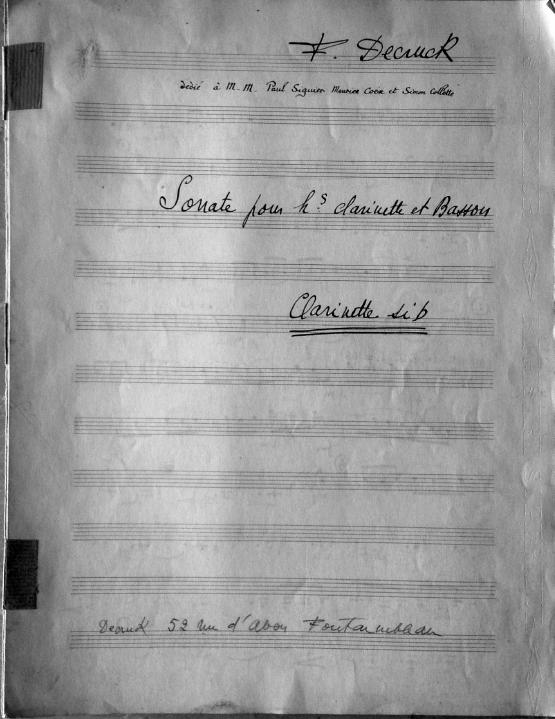 F. Decruck
dédié à M.M. Paul Siguier Maurice et Simon Collotte
Sonate pour h.s clarinette et Basson
Clarinette si b
Decruck 52 rue d'Avon Fontainebleau